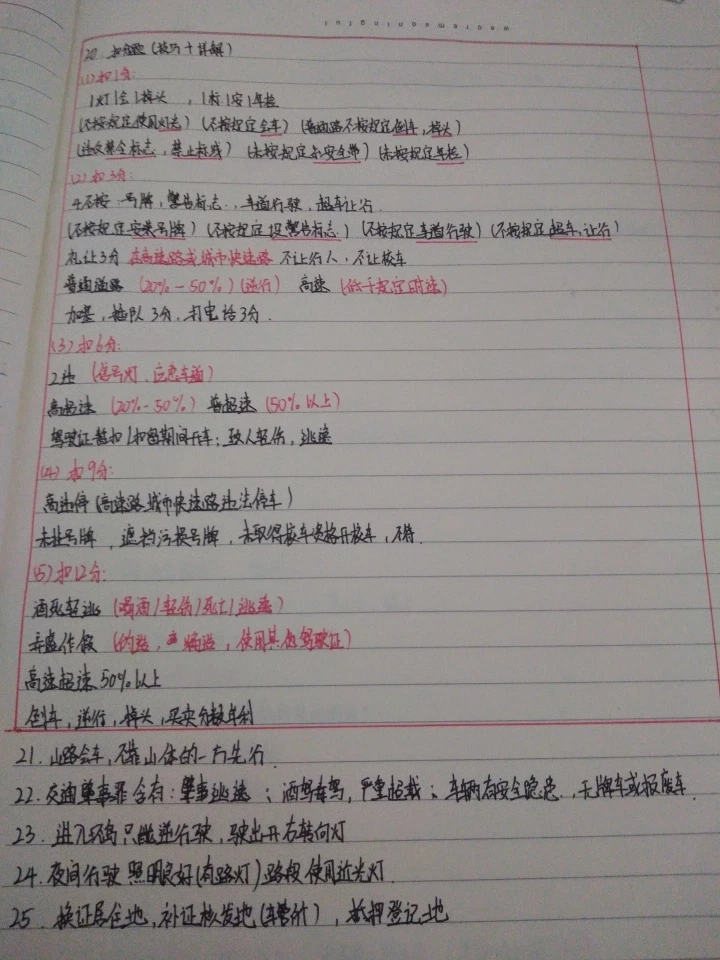 20. 扣分题（技巧+详解）
(1)扣1分:
1灯1会1掉头，1标1安1年检
(不按规定使用灯光)(不按规定会车)(普通路不按规定倒车，掉头)
(违反禁令标志，禁止标线)(未按规定系安全带)(未按规定年检)
(2)扣3分:
4不按:号牌，警告标志，车道行驶，超车让行
(不按规定安装号牌)(不按规定设警告标志)(不按规定车道行驶)(不按规定超车，让行)
礼让3分 在高速路或城市快速路 不让行人，不让校车
普通道路 (20%-50%)(逆行) 高速(低于规定时速)
加塞，插队3分，打电话3分.
(3)扣6分:
2违(信号灯、应急车道)
高超速(20%-50%) 普超速(50%以上)
驾驶证暂扣/扣留期间开车；致人轻伤，逃逸
(4)扣9分:
高违停(高速路城市快速路违法停车)
未挂号牌，遮挡污损号牌，未取得校车资格开校车，不符.
(5)扣12分:
酒死轻逃(喝酒/轻伤/死亡/逃逸)
弄虚作假(使用其他驾驶证)
高速超速50%以上
倒车，逆行，掉头，买卖分数牟利
21.山路会车，不靠山体的一方先行.
22.交通肇事罪含有:肇事逃逸；酒驾毒驾，严重超载；车辆有安全隐患，无牌车或报废车.
23.进入环岛只能逆行驶，驶出开右转向灯
24.夜间行驶 照明良好(有路灯)路段使用近光灯.
25.换证居住地，补证核发地(车管所)，抵押登记地